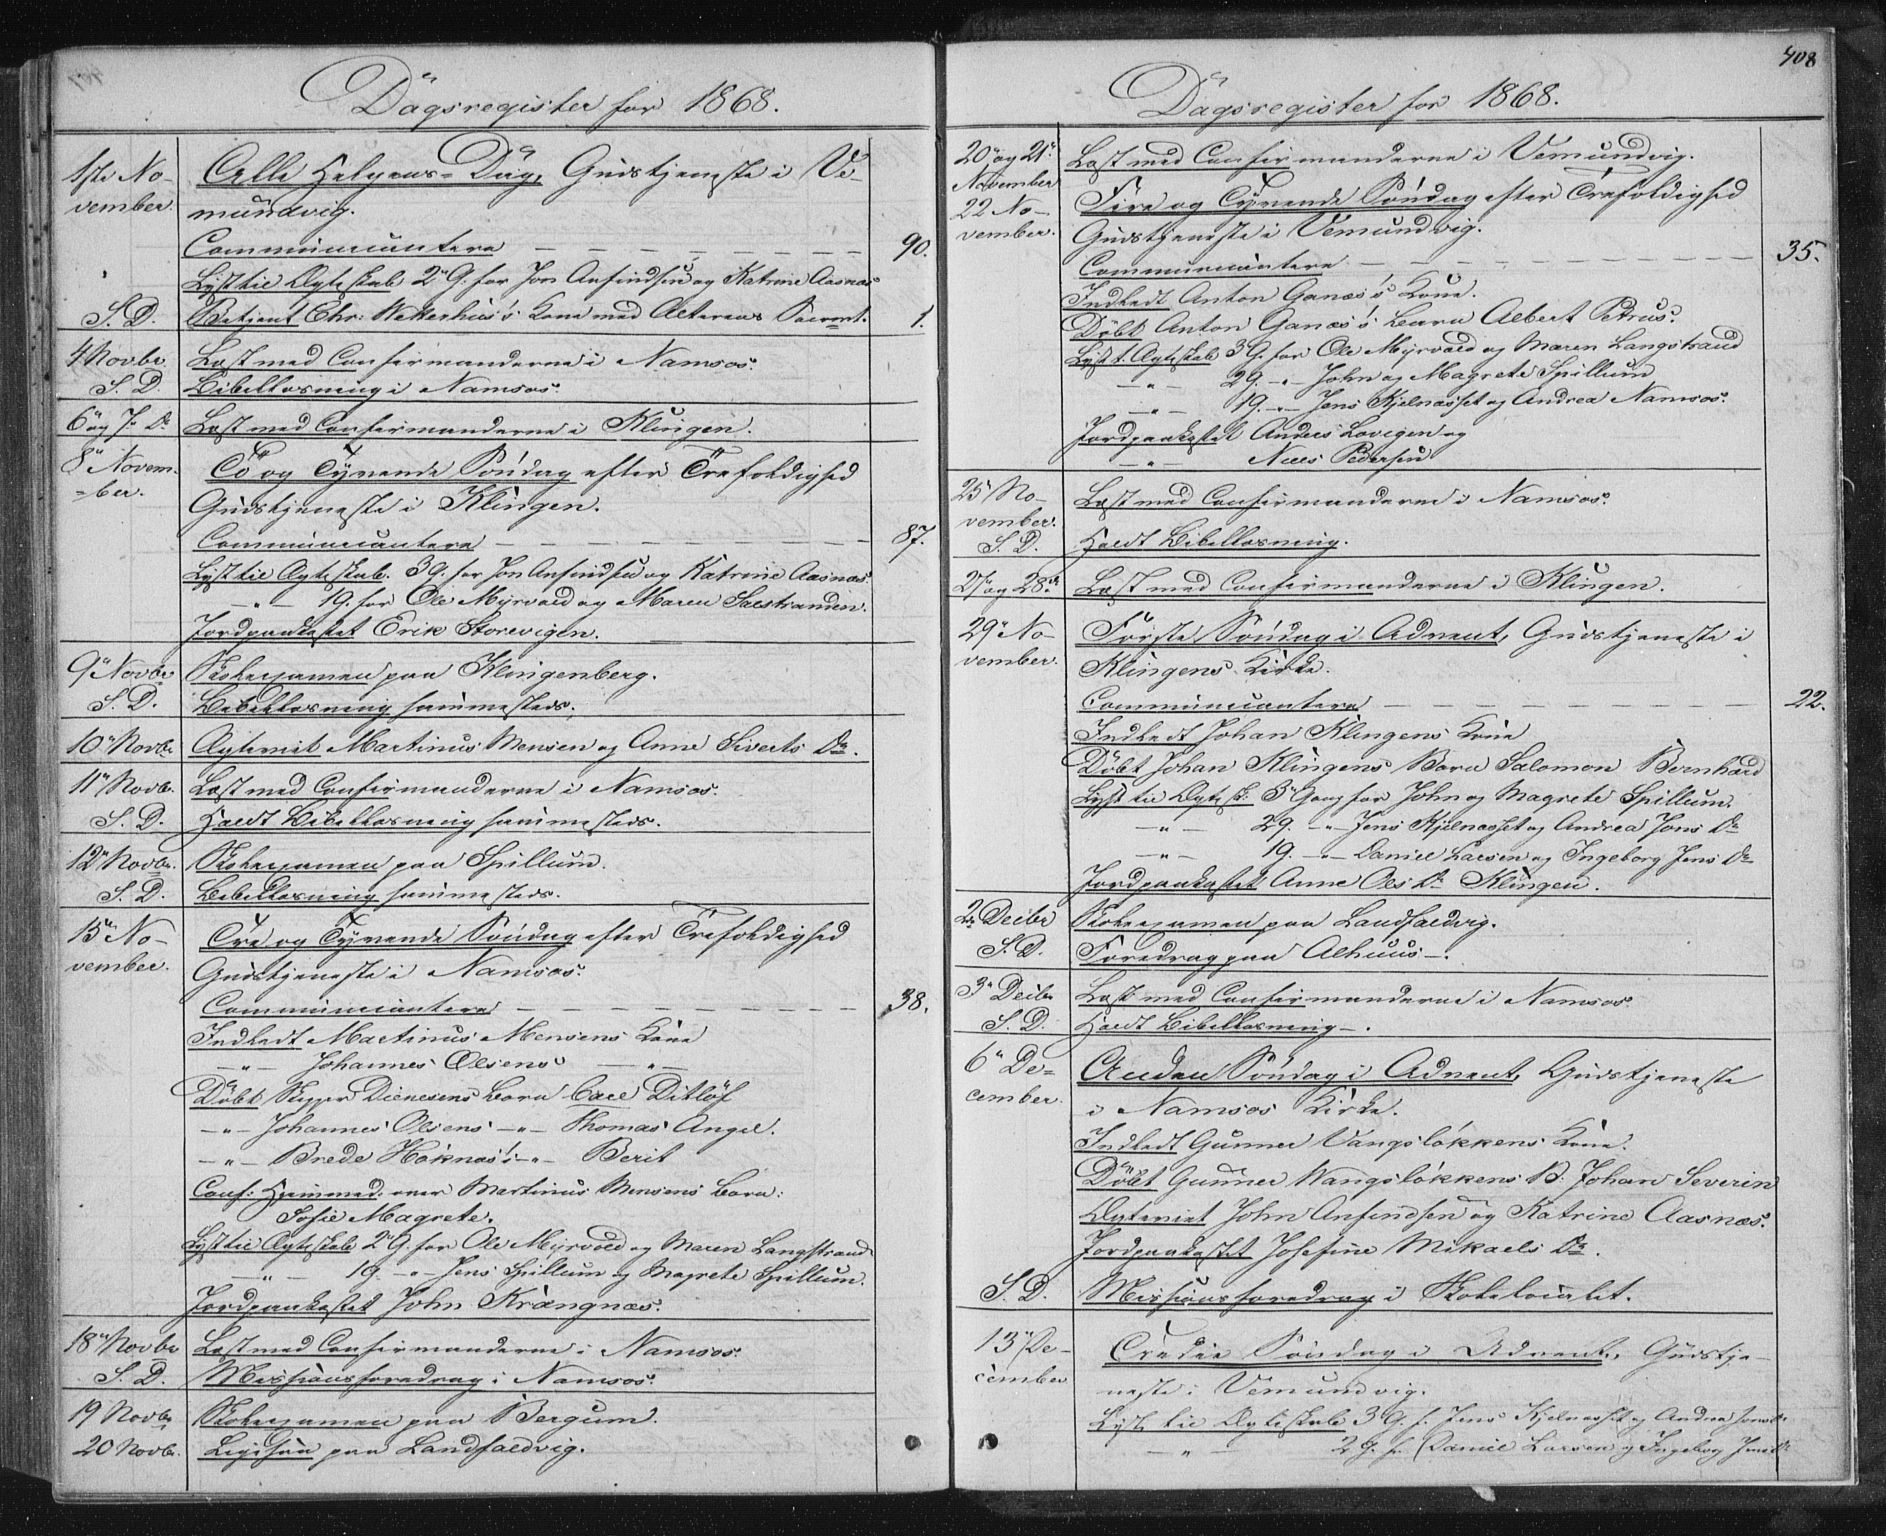 Dagsregister for 1868.
1ste No-
vember.
Alle Helgens-Dag, Gudstjeneste i Ve-
mundvig.
Communicantere — — — — — 90.
Lyst til Ægteskab 2 G. for Jon Anfindsen og Katrine Aasnæs
S. D. Betjent Chr: Wekterhus's Kone med Alterens Sacrmt. 1.
4 Novbr Læst med Confirmanderne i Namsos.
S. D. Bibellæsning i Namsos.
6 og 7 Dr Læst med Confirmanderne i Klingen.
8 Novem-
ber.
To og Tyvende Söndag efter Trefoldighed
Gudstjeneste i Klingen.
Communicantere — — — — — 87.
Lyst til Ægteskab. 3 G. for Jon Anfindsen og Katrine Aasnæs.
— " — 1 G. for Ole Myrvold og Maren
Jordpaakastet Erik Storevigen.
9 Novbr Skolexamen paa Klingenberg.
S. D. Bibellæsning sammesteds.
10 Novbr Ægteviet Martinus Mensen og Anne Siverts Dr.
11 Novbr. Læst med Confirmanderne i Namsos
S. D. Holdt Bibellæsning sammesteds.
12 Novbr. Skolexamen paa Spillum.
S. D. Bibellæsning sammesteds.
15 No-
vember.
Tre og Tyvende Söndag efter Trefoldighed
Gudstjeneste i Namsos.
Communicantere — — — — — 38.
Indledt Martinus Mensens Kone
— " — Johannes Olsens — " —
Döbt Skipper Dienesens Barn Carl Ditlöf
— " — Johannes Olsens — " — Thomas Angel.
— " — Brede Höknæs's — " — Berit
Conf: Hjemmed. over Martinus Mensens Barn:
Sofie Magrete.
Lyst til Ægteskab 2 G. for Ole Myrvold og Maren Langstrand
— " — 1 G. — " — Jens Spillum og Magrete Spillum.
Jordpaakastet John Krangnæs.
18 Novbr Læst med Confirmanderne i Namsos.
S. D. Missionsforedrag i Namsos.
19 Novbr Skolexamen paa Bergum.
20 Novbr. paa Landfaldvig.
408
Dagsregister for 1868.
20 og 21
November
Læst med Confirmanderne i Vemundvig.
22 No-
vember.
Fire og Tyvende Söndag efter Trefoldighed
Gudstjeneste i Vemundvig.
Communicantere — — — — — 35.
Indledt Anton Ganæs's Kone.
Döbt Anton Ganæs's Barn Albert Petrus.
Lyst t. Ægteskab 3 G. for Ole Myrvold og Maren Langstrand
— " — 2 G. — " — John og Magrete Spillum
— " — 1 G. — " — Jens Kjelnæsset og Andrea Namsos.
Jordpaakastet Anders Lovigen og
— " — Niels Pedersen
25 No-
vember.
Læst med Confirmanderne i Namsos.
S. D. Holdt Bibellæsning.
27 og 28 Læst med Confirmanderne i Klingen.
29 No-
vember.
Förste Söndag i Advent, Gudstjeneste i
Klingens Kirke.
Communicantere — — — — — 22.
Indledt Johan Klingens Kone
Döbt Johan Klingens Barn Salomon Bernhard
Lyst til Ægtesk: 3 Gang for John og Magrete Spillum.
— " — 2 G. — " — Jens Kjelnæsset og Andrea Jons Dr
— " — 1 G. — " — Daniel Larsen og Ingeborg Jens Dr
Jordpaakastet Anne Ols Dr Klingen.
2 Decbr Skolexamen paa Landfaldvig.
S. D. Foredrag paa Alhuus —.
3 Decbr Læst med Confirmanderne i Namsos
S. D. Holdt Bibellæsning —.
6 De-
cember.
Anden Söndag i Advent, Gudstjeneste
i Namsos Kirke.
Indledt Gunner Vangslökkens Kone.
Döbt Gunner Wangslökkens B. Johan Severin
Ægteviet John Anfindsen og Katrine Aasnæs.
Jordpaakastet Josefine Mikaels Dr.
S. D. Missionsforedrag i Skolelocalet.
13 De-
cember
Tredie Söndag i Advent, Gudstje-
neste i Vemundvig.
Lyst til Ægteskab 3 G. f. Jens Kjelnæsset og Andrea Jons Dr
" 2 G. f. Daniel Larsen og Ingeborg Jens Dr